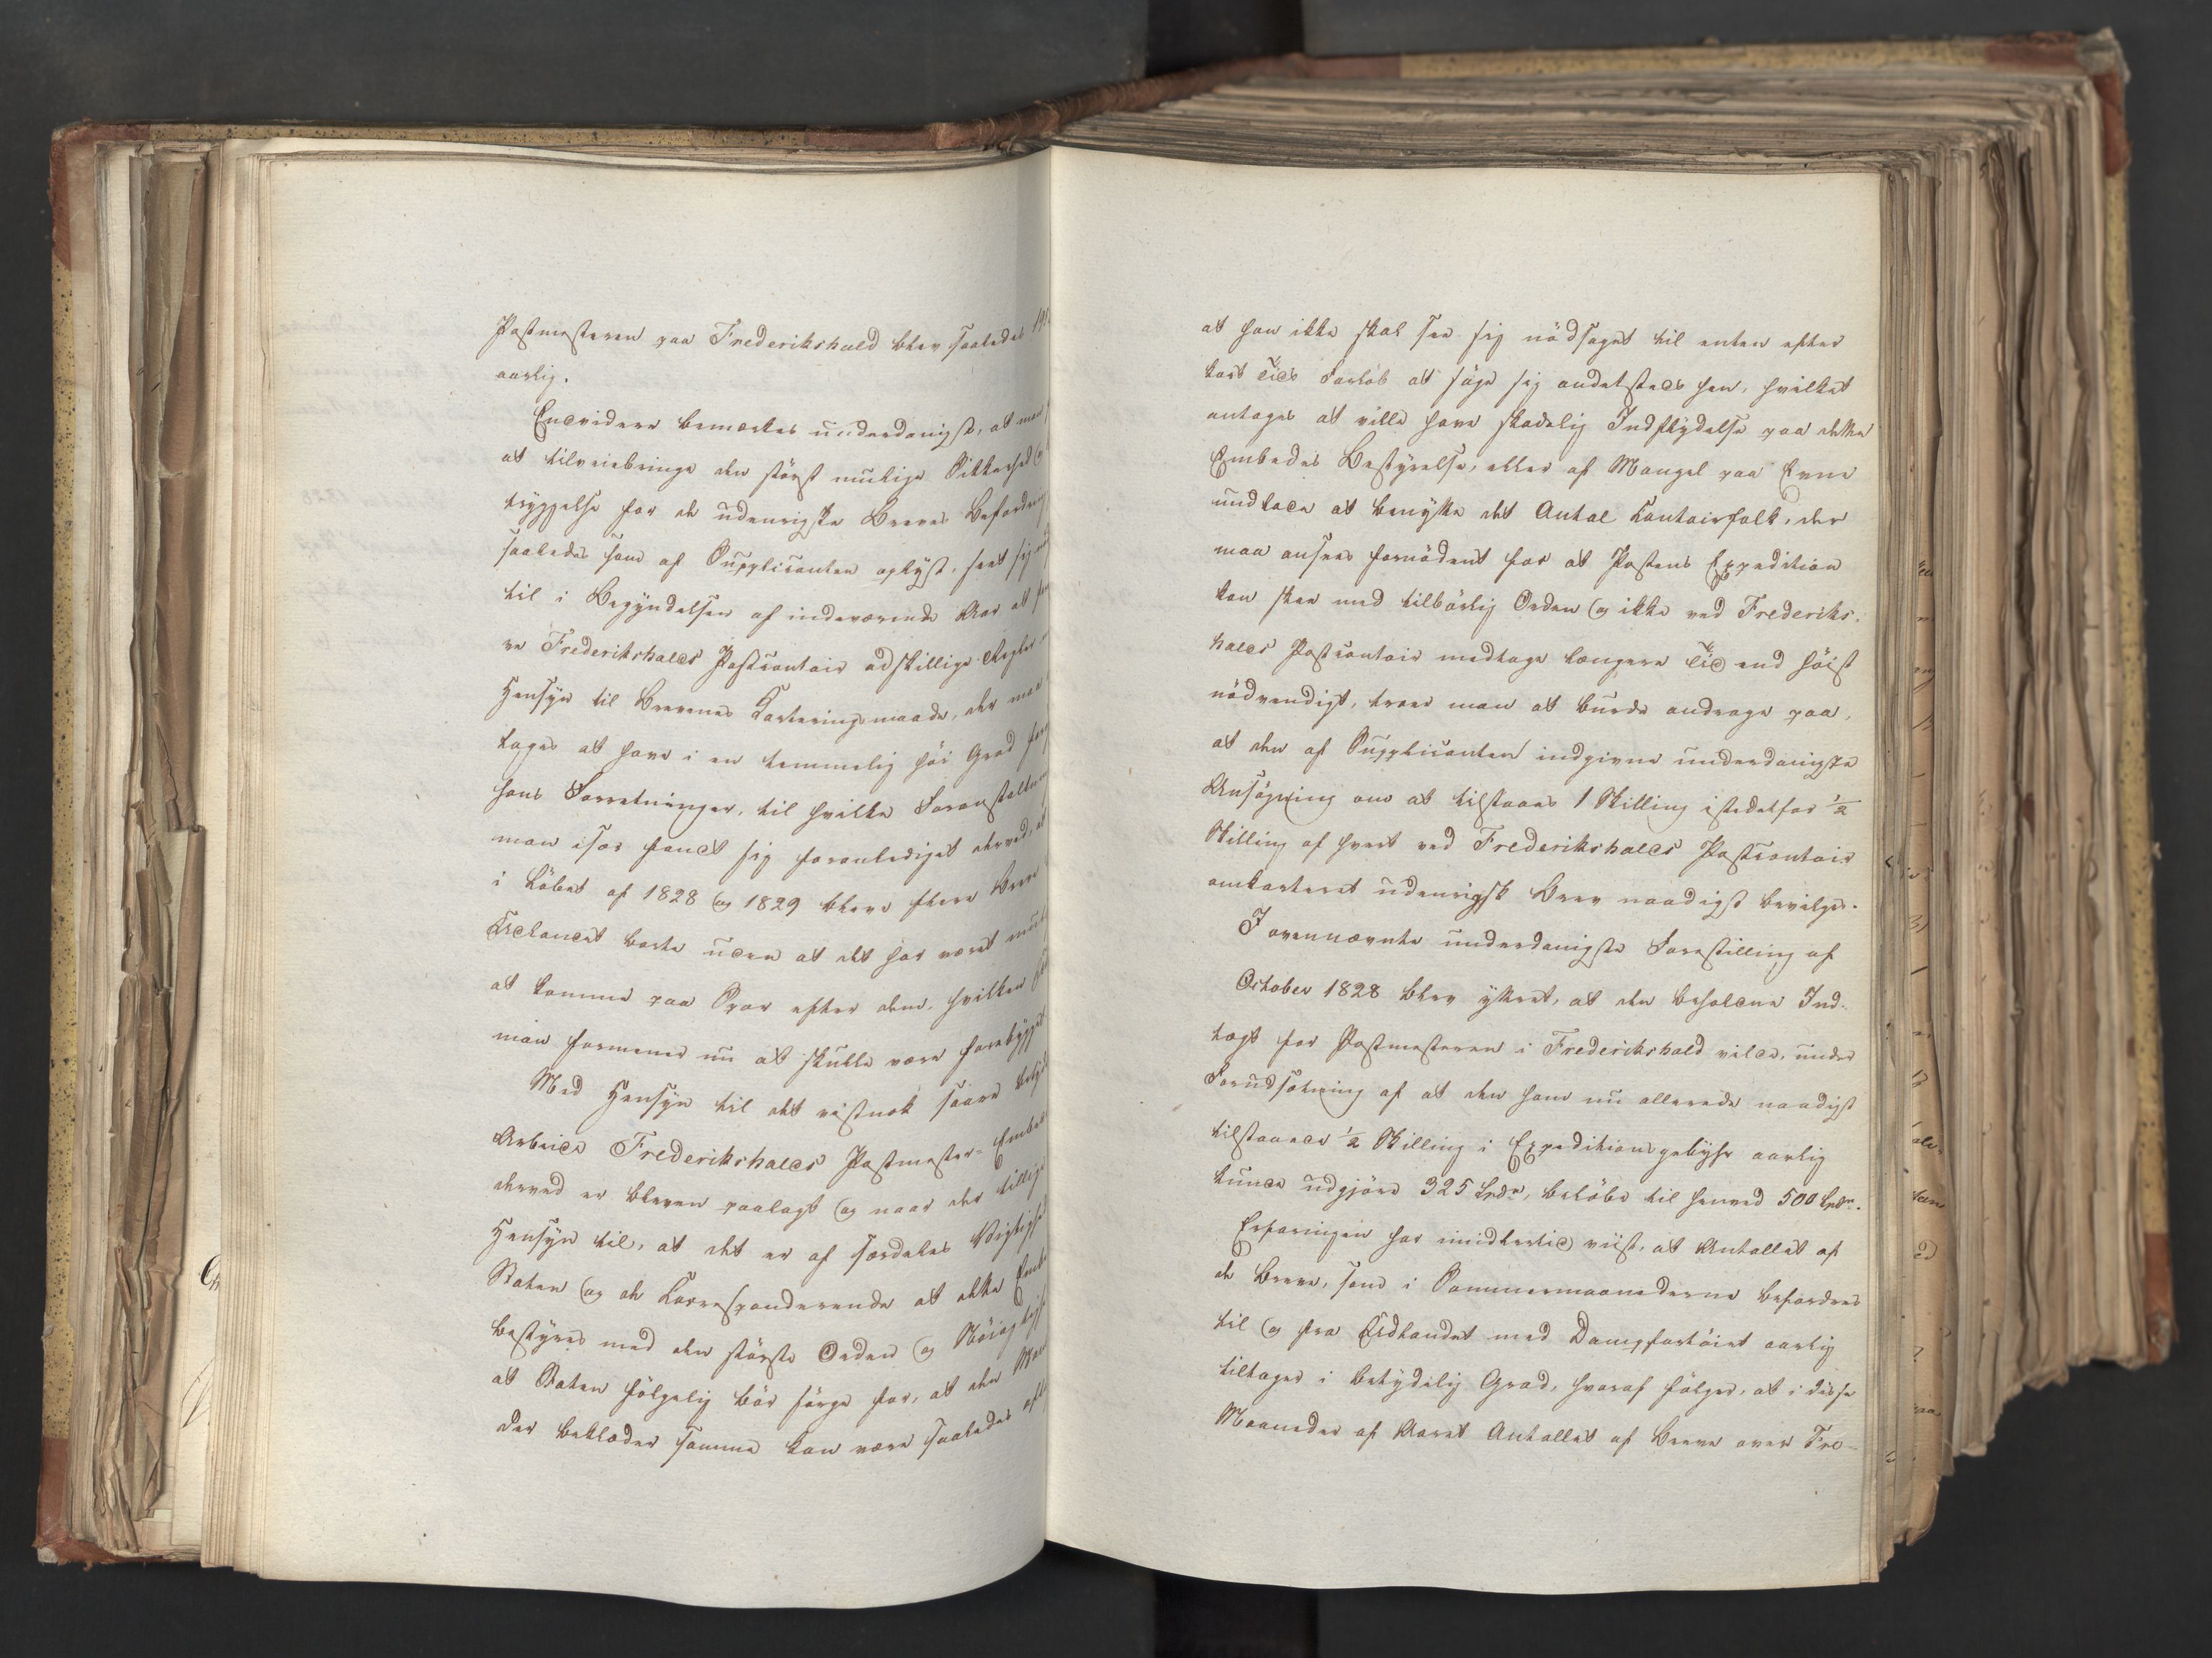 Postmesteren paa Frederikshald blev saaledes
aarlig.
Endvidere bemærkes underdanigst, at man
at tilveiebringe den størst mulige Sikkerhed og
tryggelse for de udenrigske Breves Befordring
saaledes som af Supplicanten oplyst, seet sig
til i Begyndelsen af indeværende Aar at
ve Frederikshalds Postcontoir adskillige Regler
Hensyn til Brevenes Karteringsmaade, der maa
tages at have i en temmelig høi Grad
hans Forretninger, til hvilke Foranstaltn
man især fandt sig foranlediget derved, at
i Løbet af 1828 og 1829 bleve flere Breve
Udlandet borte uden at det har været
at komme paa Spor efter dem, hvilken
man formener nu at skulle være forebygget
Med Hensyn til det vistnok saare
Arbeide Frederikshalds Postmester-Embe
derved er bleven paalagt og naar der tillige
Hensyn til, at det er af særdeles Vigtighed
Staten og de Corresponderende at dette Emb
bestyres med den største Orden og Nøiagtigh
at Staten følgelig bør sørge for, at den Man
der beklæder samme kan være saaledes
at han ikke skal see sig nødsaget til enten efter
kort Tids Forløb at søge sig andetsteds hen, hvilket
antages at ville have skadelig Indflydelse paa dette
Embedes Bestyrelse, eller af Mangel paa Evne
undlade at benytte det Antal Contoirfolk, der
maa ansees fornødent for at Postens Expedition
kan skee med tilbørlig Orden og ikke ved Frederiks-
halds Postcontoir medtage længere Tid end høist
nødvendigt, troer man at burde andrage paa,
at den af Supplicanten indgivne underdanigste
Ansøgning om at tilstaaes 1 Skilling istedetfor ½
Skilling af hvert ved Frederikshalds Postcontoir
omkarteret udenrigsk Brev naadigst bevilges.
I ovennævnte underdanigste Forestilling af
October 1828 blev yttret, at den befalede Ind-
tægt for Postmesteren i Frederikshald vilde, under
Forudsætning af at den ham nu allerede naadigst
tilstaaede ½ Skilling i Expeditionsgebyhr aarlig
kunde udgjøre 325 Spdr, beløbe til henved 500 Spdr.
Erfaringen har imidlertid viist, at Antallet af
de Breve, som i Sommermaanederne befordres
til og fra Udlandet med Dampfartøiet aarlig
tiltager i betydelig Grad, hvoraf følger, at i disse
Maaneder af Aaret Antallet af Breve over Fre-